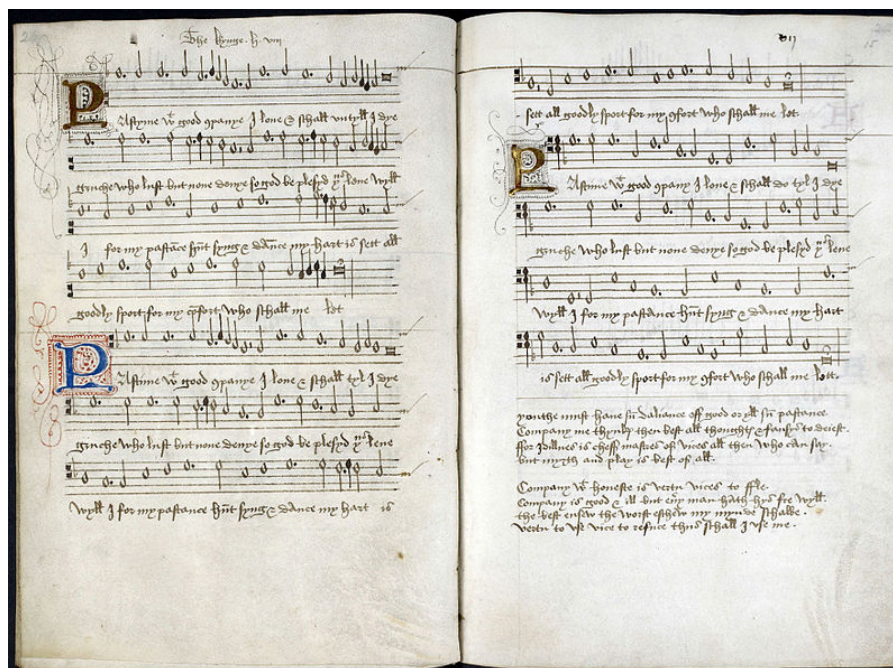 The kynge .h. viii
Pastyme wt good 9panye I love & schall untyll I dye
gruche who lust but none denye so god be plesyd yus leve wyll
I for my pastance hūt syng & dance my hart is sett all
goodly sport for my cōfort who schall me let
Pastime wt good 9panye I love & schall tyl I dye
gruche who lust but none denye so god be plesyd yus leve
wyll I for my pastance hūt syng & dance my hart is
15
sett all goodly sport for my 9fort who schall me let
Pastime wt good 9pany I love & schall do tyl I dye
gruche who lust but none denye so god be plesyd yus leve
wyll I for my pastance hūt syng & dance my hart
is sett all goodly sport for my 9fort who schall me lett.
youthe must have sū daliance off good or yll sū pastance.
Company me thynks then best all thoughts & fansys to deiest.
ffor Idillnes is cheff mastres of vices all then who can say.
but myrth and play is best of all.
Company wt honeste is vertu vices to ffle.
Company is good & ill but evy man hath hys fre wyll.
the best ensew the worst eschew my mynde schalbe.
vertu to use vice to refuce thus schall I use me.